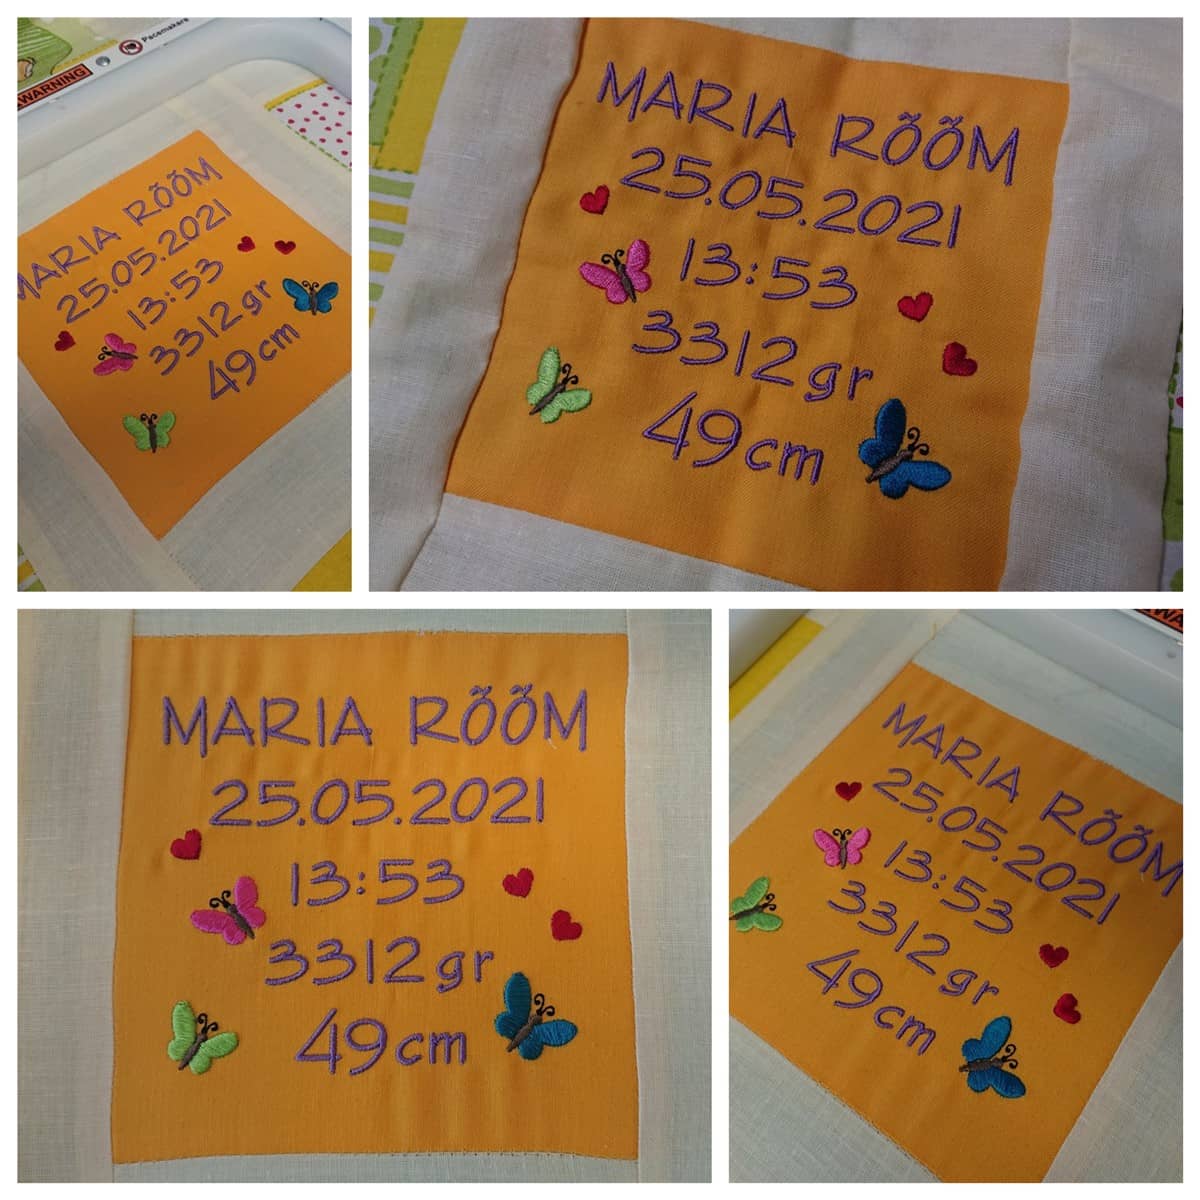 Pacemakers
WARNING
MARIA RÕÕM
25.05.2021
13:53
3312gr
49cm
MARIA RÕÕM
25.05.2021
13:53
3312gr
49cm
MARIA RÕÕM
25.05.2021
13:53
3312gr
49cm
MARIA RÕÕM
25.05.2021
13:53
3312gr
49cm